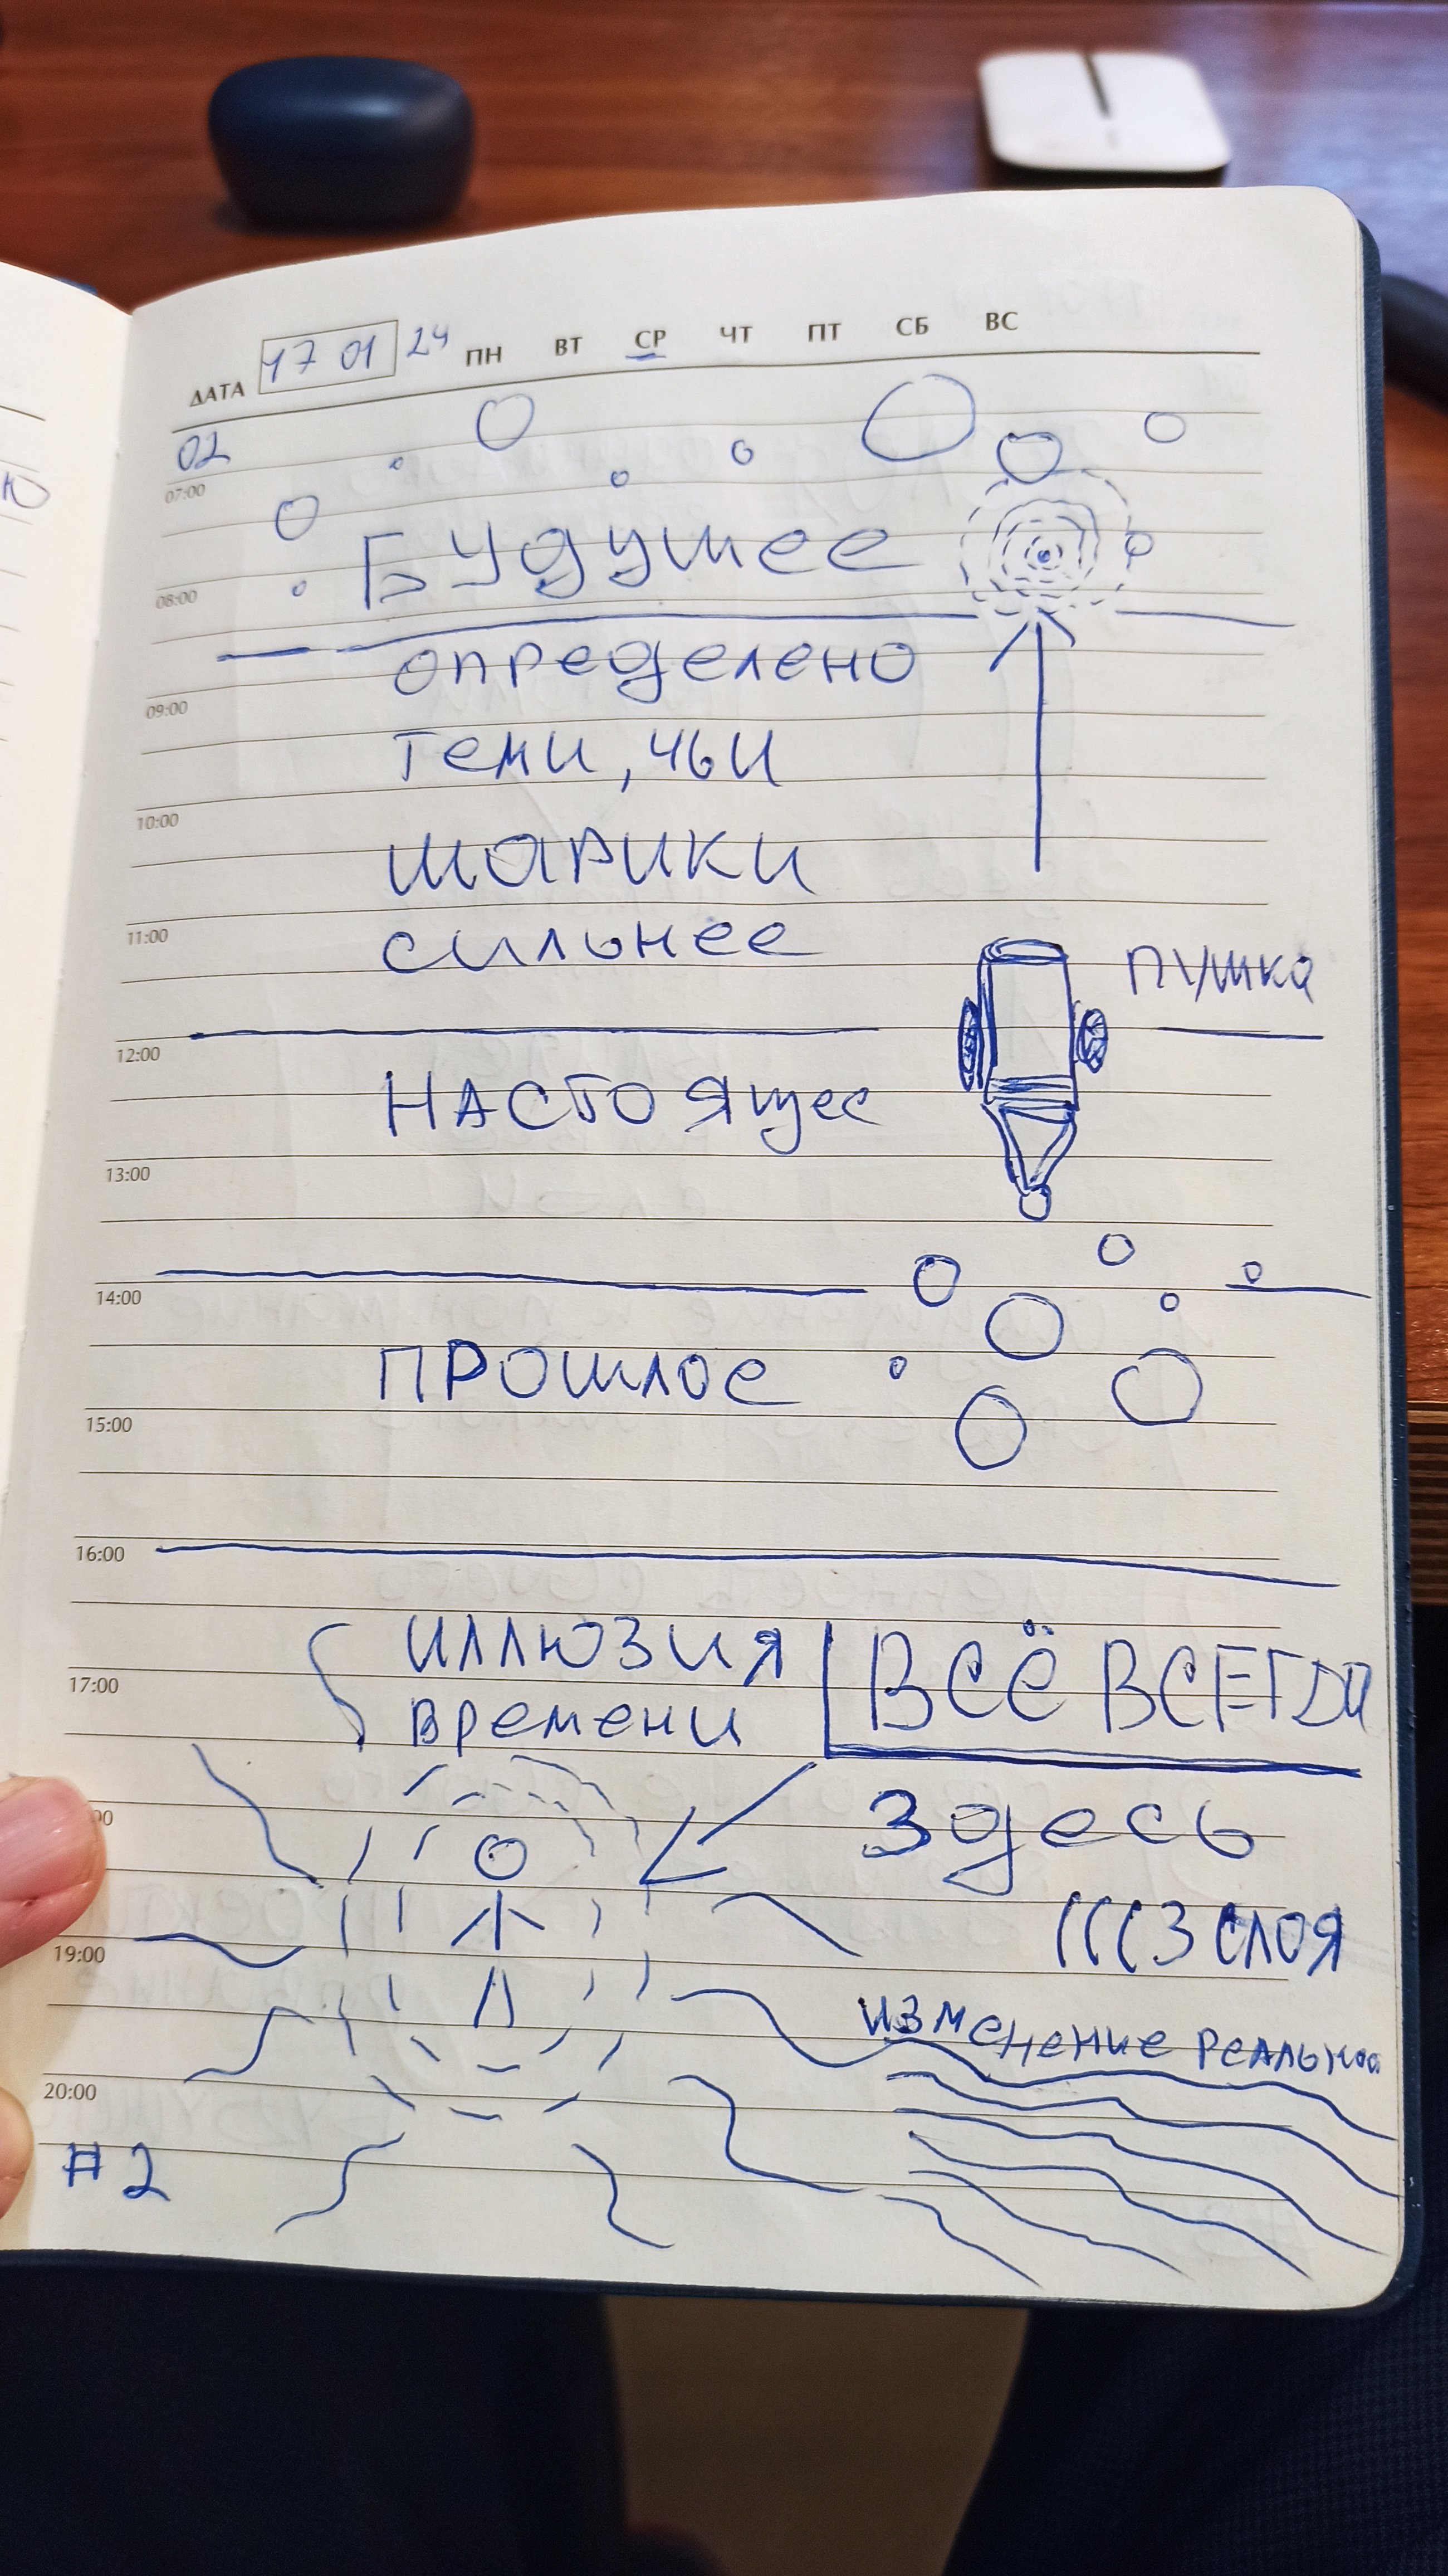 ДАТА 17 01 24 ПН ВТ СР ЧТ ПТ СБ ВС
02
07:00
Будущее
08:00
определено
09:00
теми, чьи
10:00
шарики
11:00
сильнее
пушка
12:00
НАСТОЯщее
13:00
14:00
ПРОШЛОЕ
15:00
16:00
ИЛЛЮЗИЯ ВСЁ ВСЕГДА
17:00
времени
Здесь
(((3 СЛОЯ
19:00
ИЗМЕНЕНИЕ
20:00
#2